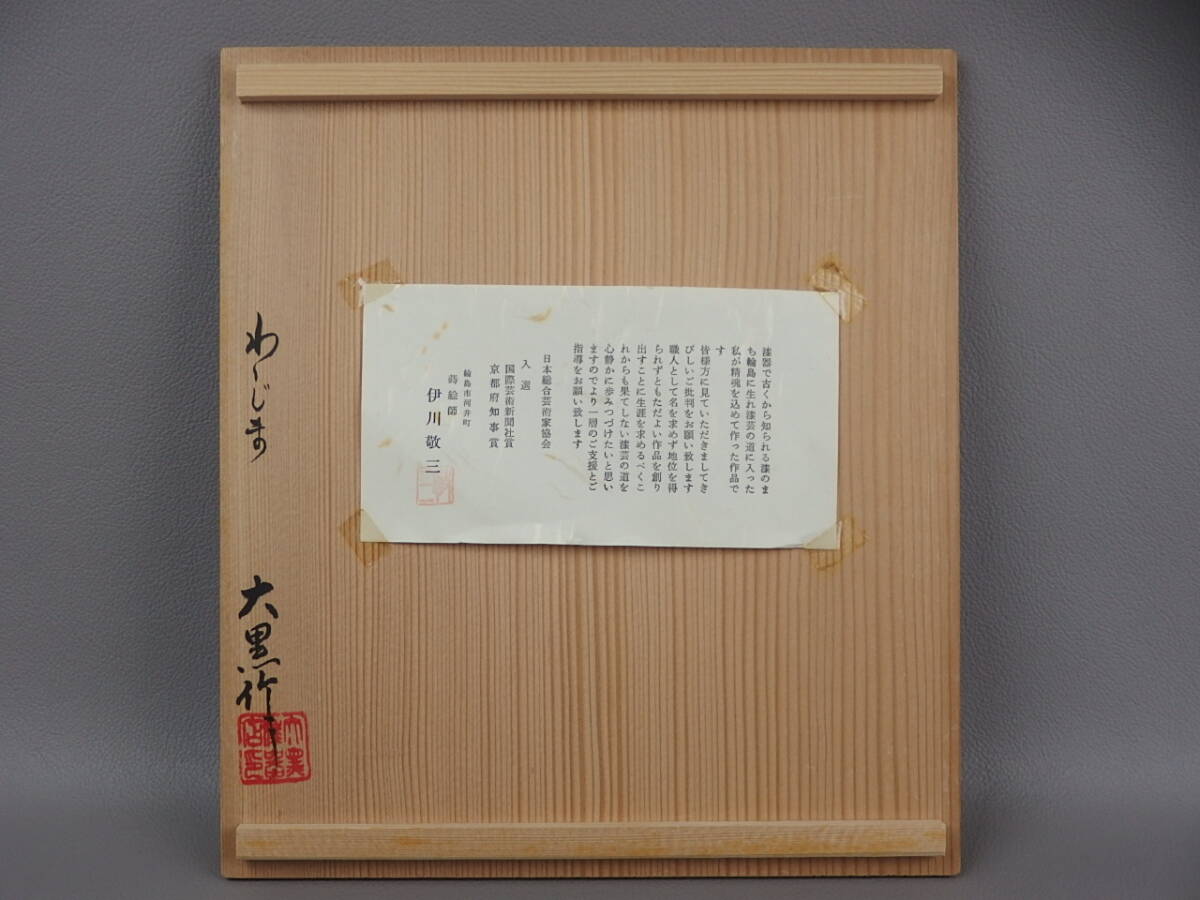 漆器で古くから知られる漆のま
ち輪島に生れ漆芸の道に入った
私が精魂を込めて作った作品で
す
皆様方に見ていただきましてき
びしいご批判をお願い致します
職人として名を求めず地位を得
られずともただよい作品を創り
出すことに生涯を求めるべくこ
れからも果てしない漆芸の道を
心静かに歩みつづけたいと思い
ますのでより一層のご支援とご
指導をお願い致します
日本総合芸術家協会
入選
国際芸術新聞社賞
京都府知事賞
輪島市河井町
蒔絵師
伊川敬三
わじま
大黒作
大黒漆器店印